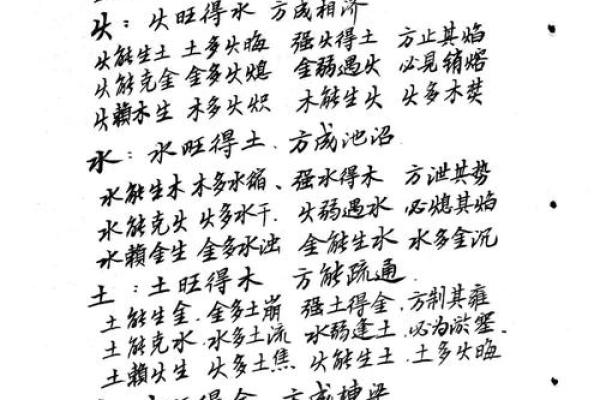 火：火旺得水 方成相济
火能生土 土多火晦 强火得土 方止其焰
火能克金 金多火熄 金弱遇火 必见销熔
火賴木生 木多火炽 木能生火 火多木焚
水：水旺得土、方成池沼
水能生木 木多水缩、强水得木 方泄其势
水能克火 火多水干、火弱遇水 必熄其焰
水賴金生 金多水浊 金能生水 水多金沉
土：土旺得木 方能疏通
土能生金、金多土崩 强土得金、方制其壅
土能克水、水多土流 水弱逢土、必为淤塞、
土賴火生 火多土焦 火能生土、土多火晦
旺得金 方成棟梁